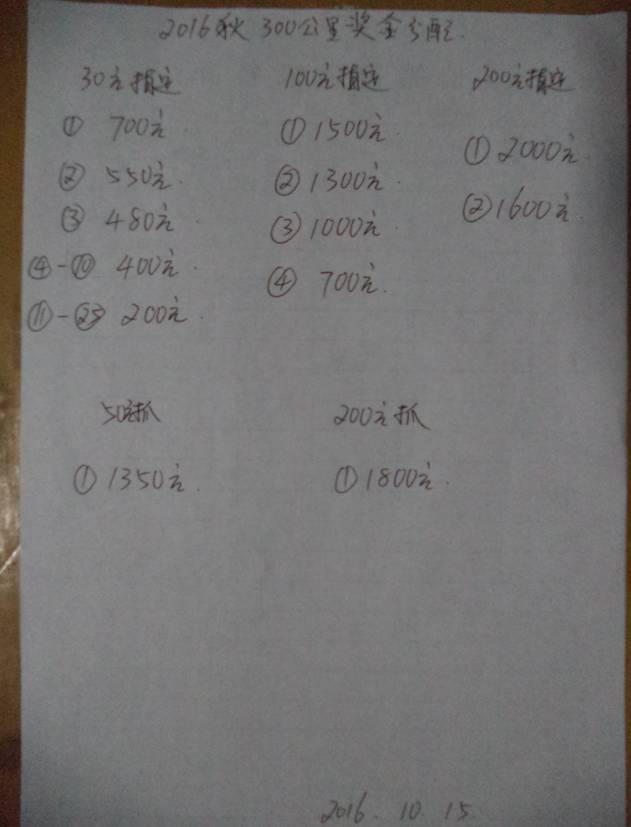 2016秋 300公里奖金分配.
30元指定 100元指定 200元指定
① 700元 ① 1500元. ① 2000元.
② 550元. ② 1300元. ② 1600元.
③ 480元. ③ 1000元.
④-⑩ 400元. ④ 700元.
⑪-㉕ 200元.
50元抓 200元抓
① 1350元. ① 1800元.
2016. 10. 15.